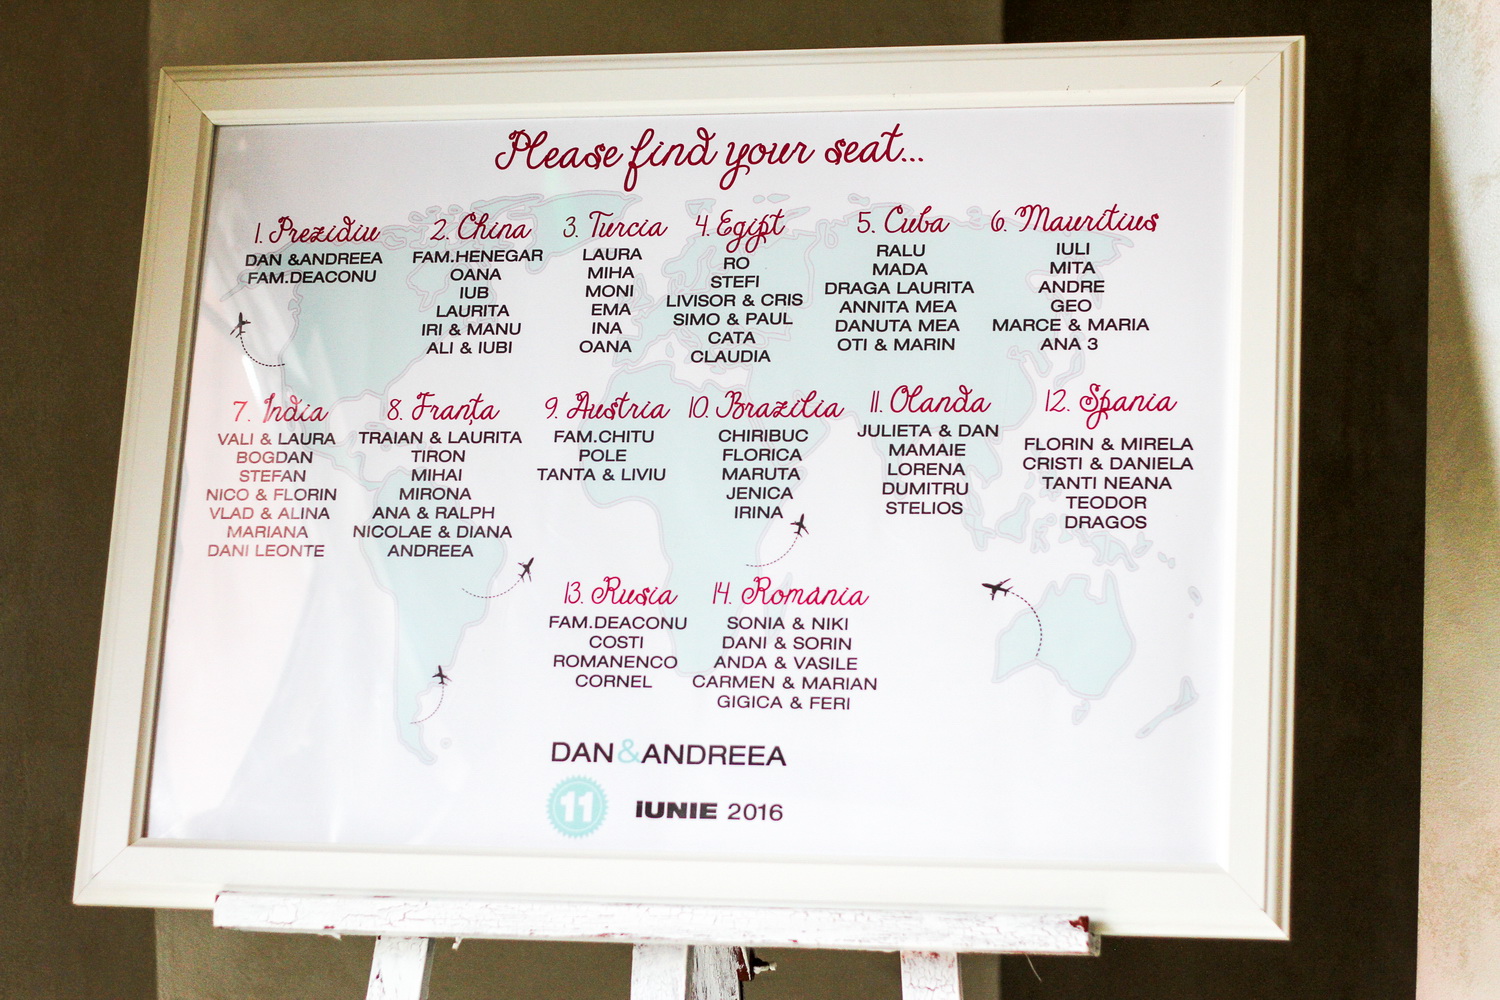 Please find your seat...
1. Prezidiu
DAN &ANDREEA
FAM.DEACONU
2. China
FAM.HENEGAR
OANA
IUB
LAURITA
IRI & MANU
ALI & IUBI
3. Turcia
LAURA
MIHA
MONI
EMA
INA
OANA
4. Egipt
RO
STEFI
LIVISOR & CRIS
SIMO & PAUL
CATA
CLAUDIA
5. Cuba
RALU
MADA
DRAGA LAURITA
ANNITA MEA
DANUTA MEA
OTI & MARIN
6. Mauritius
IULI
MITA
ANDRE
GEO
MARCE & MARIA
ANA 3
7. India
VALI & LAURA
BOGDAN
STEFAN
NICO & FLORIN
VLAD & ALINA
MARIANA
DANI LEONTE
8. Franța
TRAIAN & LAURITA
TIRON
MIHAI
MIRONA
ANA & RALPH
NICOLAE & DIANA
ANDREEA
9. Austria
FAM.CHITU
POLE
TANTA & LIVIU
10. Brazilia
CHIRIBUC
FLORICA
MARUTA
JENICA
IRINA
11. Olanda
JULIETA & DAN
MAMAIE
LORENA
DUMITRU
STELIOS
12. Spania
FLORIN & MIRELA
CRISTI & DANIELA
TANTI NEANA
TEODOR
DRAGOS
13. Rusia
FAM.DEACONU
COSTI
ROMANENCO
CORNEL
14. Romania
SONIA & NIKI
DANI & SORIN
ANDA & VASILE
CARMEN & MARIAN
GIGICA & FERI
DAN&ANDREEA
11 iUNIE 2016